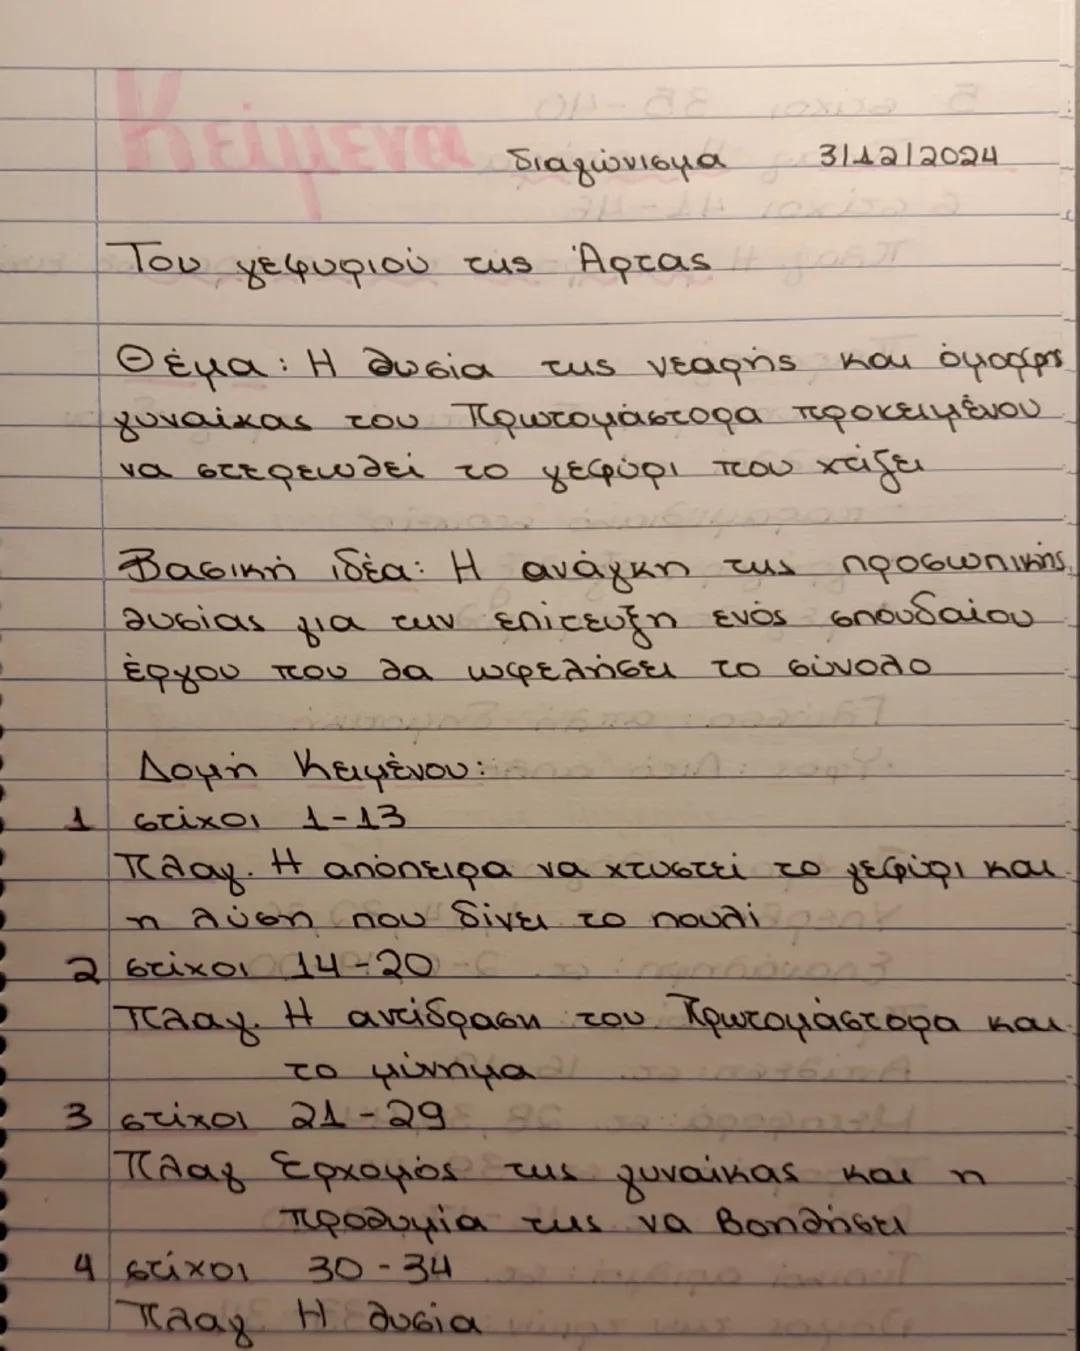 Κείμενα
διαγώνισμα 3/12/2024
Του γεφυριού της Άρτας
Θέμα: Η θυσία της νεαρής και όμορφης
γυναίκας του Πρωτομάστορα προκειμένου
να στερεωθεί το γεφύρι που χτίζει
Βασική ιδέα: Η ανάγκη της προσωπικής
θυσίας για την επίτευξη ενός σπουδαίου
έργου που θα ωφελήσει το σύνολο
Δομή Κειμένου:
1 στίχοι 1-13
Πλαγ. Η απόπειρα να χτυστεί το γεφύρι και
η λύση που δίνει το πουλί
2 στίχοι 14-20
Πλαγ. Η αντίδραση του Πρωτομάστορα και
το μύνημα
3 στίχοι 21-29
Πλαγ Ερχομός της γυναίκας και η
προθυμία της να βοηθήσει
4 στίχοι 30-34
Πλαγ Η θυσία